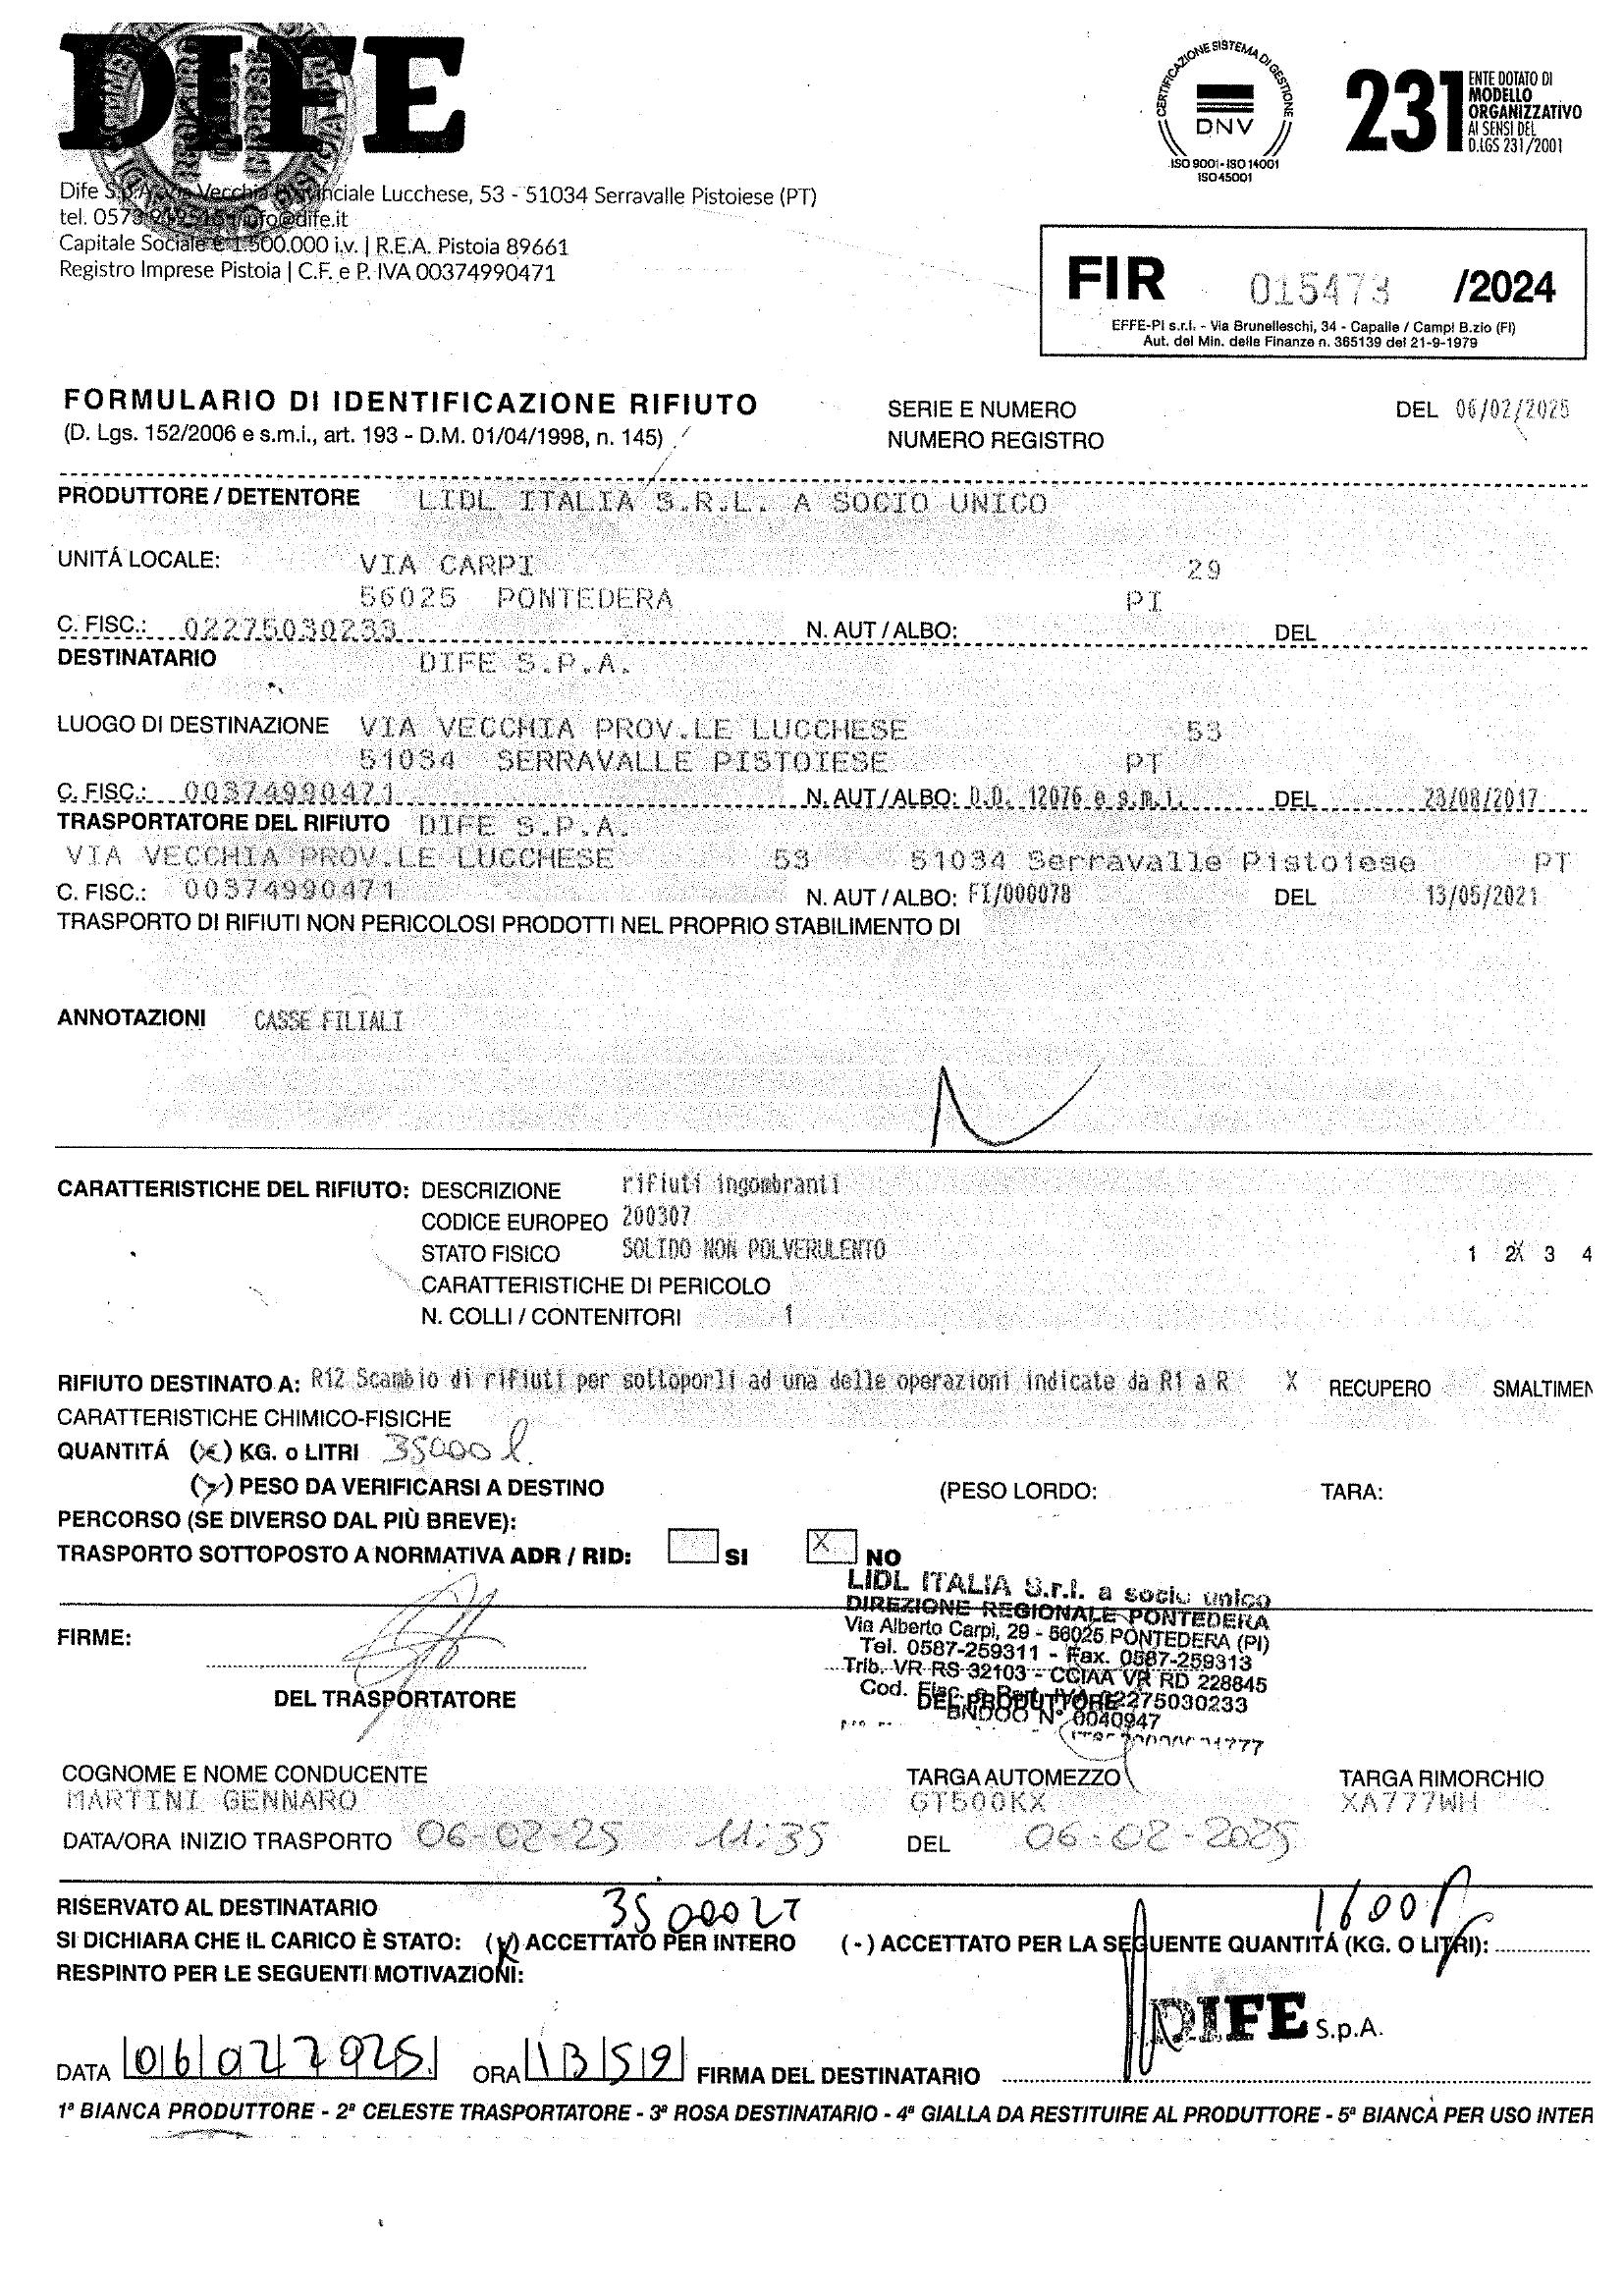 DIFE
Dife S.p.A. Via Vecchia Provinciale Lucchese, 53 - 51034 Serravalle Pistoiese (PT)
tel. 0573 info@dife.it
Capitale Sociale € 1.500.000 i.v. | R.E.A. Pistoia 89661
Registro Imprese Pistoia | C.F. e P. IVA 00374990471
CERTIFICAZIONE SISTEMA DI GESTIONE
DNV
ISO 9001 - ISO 14001
ISO 45001
231 ENTE DOTATO DI
MODELLO
ORGANIZZATIVO
AI SENSI DEL
D.LGS 231/2001
FIR 015473 /2024
EFFE-PI s.r.l. - Via Brunelleschi, 34 - Capalle / Campi B.zio (FI)
Aut. del Min. delle Finanze n. 365139 del 21-9-1979
FORMULARIO DI IDENTIFICAZIONE RIFIUTO
(D. Lgs. 152/2006 e s.m.i., art. 193 - D.M. 01/04/1998, n. 145)
SERIE E NUMERO DEL 06/02/2025
NUMERO REGISTRO
PRODUTTORE / DETENTORE LIDL ITALIA S.R.L. A SOCIO UNICO
UNITÁ LOCALE: VIA CARPI 29
56025 PONTEDERA PI
C. FISC.: 02275030233 N. AUT / ALBO: DEL
DESTINATARIO DIFE S.P.A.
LUOGO DI DESTINAZIONE VIA VECCHIA PROV.LE LUCCHESE 53
51034 SERRAVALLE PISTOIESE PT
C. FISC.: 00374990471 N. AUT / ALBO: D.D. 12076 e s.m.i. DEL 23/08/2017
TRASPORTATORE DEL RIFIUTO DIFE S.P.A.
VIA VECCHIA PROV.LE LUCCHESE 53 51034 Serravalle Pistoiese PT
C. FISC.: 00374990471 N. AUT / ALBO: FI/000078 DEL 13/05/2021
TRASPORTO DI RIFIUTI NON PERICOLOSI PRODOTTI NEL PROPRIO STABILIMENTO DI
ANNOTAZIONI CASSE FILIALI
CARATTERISTICHE DEL RIFIUTO: DESCRIZIONE rifiuti ingombranti
CODICE EUROPEO 200307
STATO FISICO SOLIDO NON POLVERULENTO 1 2X 3 4
CARATTERISTICHE DI PERICOLO
N. COLLI / CONTENITORI 1
RIFIUTO DESTINATO A: R12 Scambio di rifiuti per sottoporli ad una delle operazioni indicate da R1 a R X RECUPERO SMALTIMEN
CARATTERISTICHE CHIMICO-FISICHE
QUANTITÁ (x) KG. o LITRI 35000 l.
(x) PESO DA VERIFICARSI A DESTINO (PESO LORDO: TARA:
PERCORSO (SE DIVERSO DAL PIÙ BREVE):
TRASPORTO SOTTOPOSTO A NORMATIVA ADR / RID: SI X NO
LIDL ITALIA S.r.l. a socio unico
DIREZIONE REGIONALE PONTEDERA
Via Alberto Carpi, 29 - 56025 PONTEDERA (PI)
Tel. 0587-259311 - Fax. 0587-259313
Trib. VR RS 32103 - CCIAA VR RD 228845
Cod. Fisc. e Part. IVA 02275030233
BNDOO N° 0040947
FIRME:
DEL TRASPORTATORE DEL PRODUTTORE
COGNOME E NOME CONDUCENTE TARGA AUTOMEZZO TARGA RIMORCHIO
MARTINI GENNARO GT500KX XA777WH
DATA/ORA INIZIO TRASPORTO 06-02-25 11:35 DEL 06-02-2025
RISERVATO AL DESTINATARIO 35000 LT 1600
SI DICHIARA CHE IL CARICO È STATO: (x) ACCETTATO PER INTERO (-) ACCETTATO PER LA SEGUENTE QUANTITÁ (KG. O LITRI):
RESPINTO PER LE SEGUENTI MOTIVAZIONI:
DIFE S.p.A.
DATA 06/02/2025 ORA 13 59 FIRMA DEL DESTINATARIO
1ª BIANCA PRODUTTORE - 2ª CELESTE TRASPORTATORE - 3ª ROSA DESTINATARIO - 4ª GIALLA DA RESTITUIRE AL PRODUTTORE - 5ª BIANCA PER USO INTER